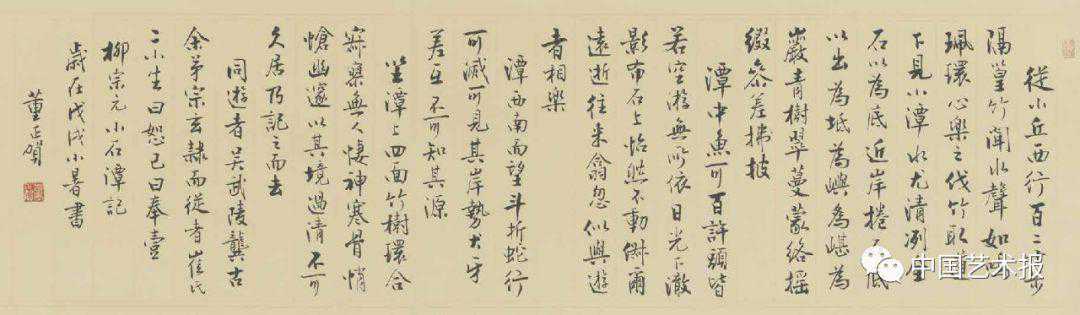 從小丘西行百二十步
隔篁竹聞水聲如鳴
珮環心樂之伐竹取道
下見小潭水尤清冽全
石以為底近岸捲石底
以出為坻為嶼為嵁為
巖青樹翠蔓蒙絡搖
綴叅差拂披
潭中魚可百許頭皆
若空游無所依日光下澈
影布石上怡然不動俶爾
遠逝往来翕忽似與遊
者相樂
潭西南而望斗折蛇行
可滅可見其岸勢犬牙
差互不可知其源
坐潭上四面竹樹環合
寂寥無人悽神寒骨悄
愴幽邃以其境過清不可
久居乃記之而去
同遊者吳武陵龔古
余弟宗玄隸而從者崔氏
二小生曰恕己曰奉壹
柳宗元小石潭記
歲在戊戌小暑書
董正賀
中国艺术报